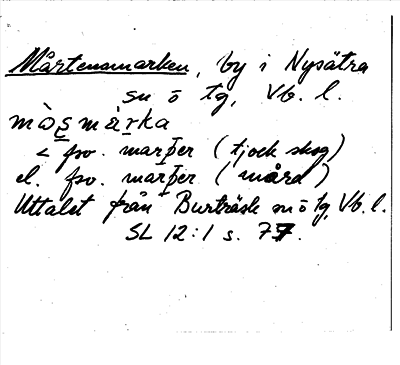 Mårtensmarken, by i Nysätra
sn o tg, Vb. l.
mɔ̀s̱màṟka
< fsv. marþer (tjock skog)
el. fsv. marþer (mård)
Uttalet från Burträsk sn o tg, Vb. l.
SL 12:1 s. 77.